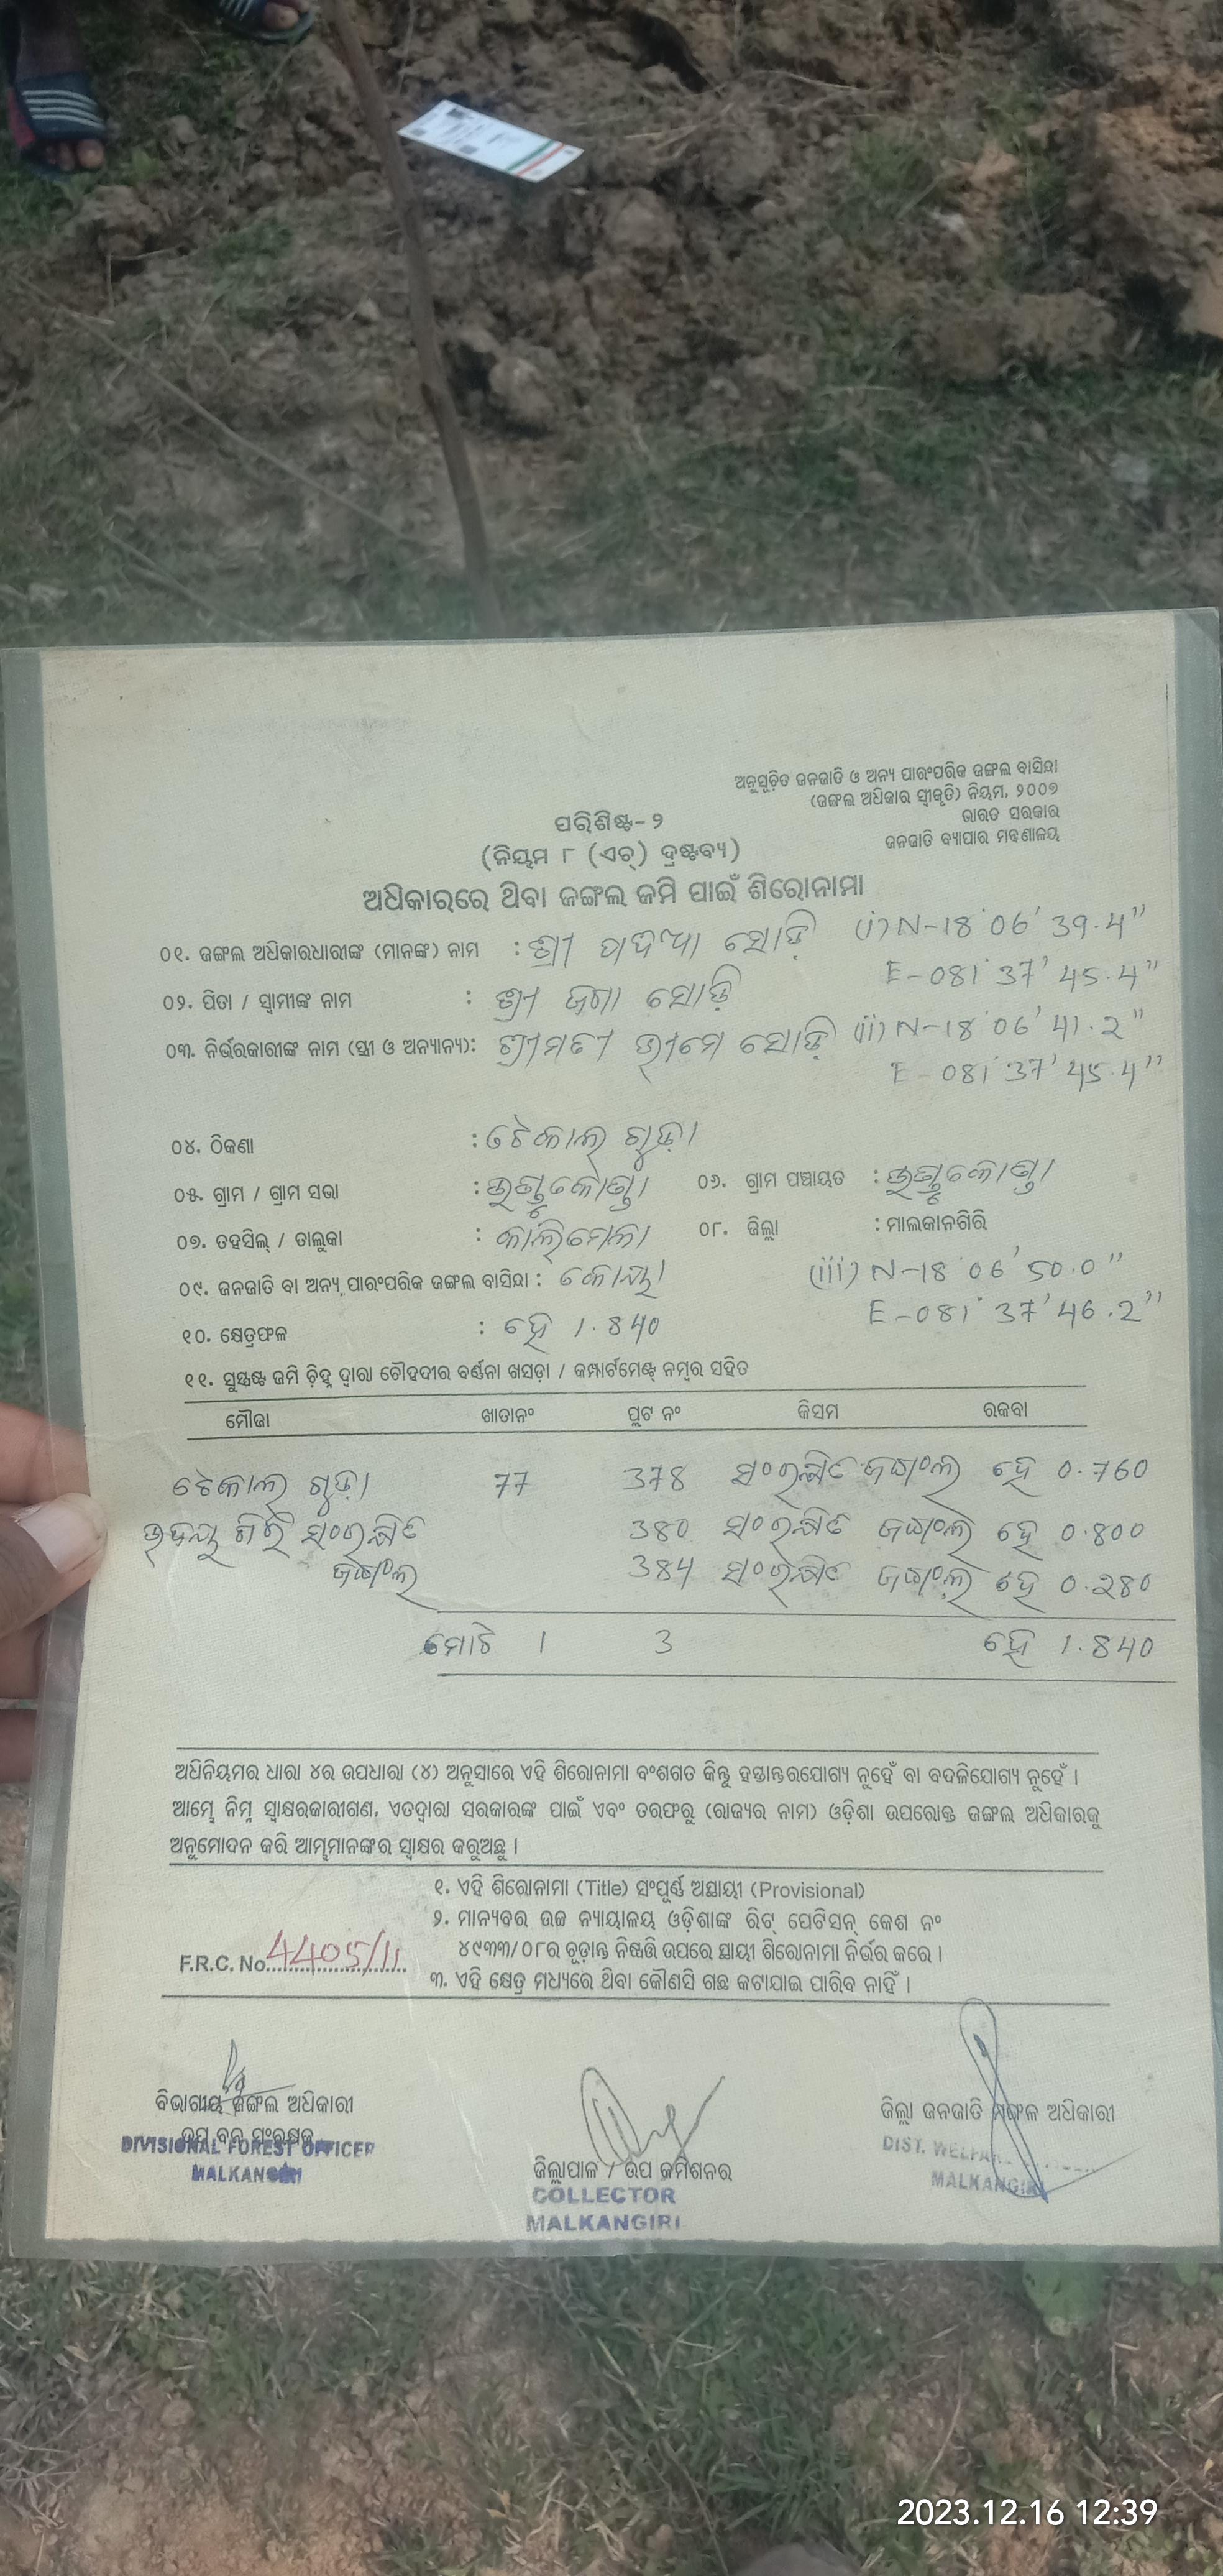 ଅନୁସୂଚିତ ଜନଜାତି ଓ ଅନ୍ୟ ପାରଂପରିକ ଜଙ୍ଗଲ ବାସିନ୍ଦା
(ଜଙ୍ଗଲ ଅଧିକାର ସ୍ୱୀକୃତି) ନିୟମ, ୨୦୦୭
ଭାରତ ସରକାର
ଜନଜାତି ବ୍ୟାପାର ମନ୍ତ୍ରଣାଳୟ
ପରିଶିଷ୍ଟ- ୨
(ନିୟମ ୮ (ଏଚ୍) ଦ୍ରଷ୍ଟବ୍ୟ)
ଅଧିକାରରେ ଥିବା ଜଙ୍ଗଲ ଜମି ପାଇଁ ଶିରୋନାମା
୦୧. ଜଙ୍ଗଲ ଅଧିକାରଧାରୀଙ୍କ (ମାନଙ୍କ) ନାମ : ଶ୍ରୀ ସୋଡ଼ି (i) N-18°06'39.4"
E-081°37'45.4"
୦୨. ପିତା / ସ୍ୱାମୀଙ୍କ ନାମ : ଶ୍ରୀ ଜଗା ସୋଡ଼ି
୦୩. ନିର୍ଭରକାରୀଙ୍କ ନାମ (ସ୍ତ୍ରୀ ଓ ଅନ୍ୟାନ୍ୟ): ଶ୍ରୀମତୀ ଭୀମେ ସୋଡ଼ି (ii) N-18°06'41.2"
E-081°37'45.4"
୦୪. ଠିକଣା : ଟେକାଲ ଗୁଡ଼ା
୦୫. ଗ୍ରାମ / ଗ୍ରାମ ସଭା : ୦୬. ଗ୍ରାମ ପଞ୍ଚାୟତ :
୦୭. ତହସିଲ୍ / ତାଲୁକା : କାଲିମେଳା ୦୮. ଜିଲ୍ଲା : ମାଲକାନଗିରି
୦୯. ଜନଜାତି ବା ଅନ୍ୟ ପାରଂପରିକ ଜଙ୍ଗଲ ବାସିନ୍ଦା : କୋୟା (iii) N-18°06'50.0"
E-081°37'46.2"
୧୦. କ୍ଷେତ୍ରଫଳ : ହେ 1.840
୧୧. ସୁସ୍ପଷ୍ଟ ଜମି ଚିହ୍ନ ଦ୍ୱାରା ଚୌହଦୀର ବର୍ଣ୍ଣନା ଖସଡ଼ା / କମ୍ପାର୍ଟମେଣ୍ଟ୍ ନମ୍ବର ସହିତ
ମୌଜା ଖାତାନଂ ପ୍ଲଟ ନଂ କିସମ ରକବା
ଟେକାଲ ଗୁଡ଼ା 77 378 ସଂରକ୍ଷିତ ଜଙ୍ଗଲ ହେ 0.760
ଉଦୟ ଗିରି ସଂରକ୍ଷିତ 380 ସଂରକ୍ଷିତ ଜଙ୍ଗଲ ହେ 0.800
ଜଙ୍ଗଲ 384 ସଂରକ୍ଷିତ ଜଙ୍ଗଲ ହେ 0.280
ମୋଟ 1 3 ହେ 1.840
ଅଧିନିୟମର ଧାରା ୪ର ଉପଧାରା (୪) ଅନୁସାରେ ଏହି ଶିରୋନାମା ବଂଶଗତ କିନ୍ତୁ ହସ୍ତାନ୍ତରଯୋଗ୍ୟ ନୁହେଁ ବା ବଦଳିଯୋଗ୍ୟ ନୁହେଁ ।
ଆମ୍ଭେ ନିମ୍ନ ସ୍ୱାକ୍ଷରକାରୀଗଣ, ଏତଦ୍ୱାରା ସରକାରଙ୍କ ପାଇଁ ଏବଂ ତରଫରୁ (ରାଜ୍ୟର ନାମ) ଓଡ଼ିଶା ଉପରୋକ୍ତ ଜଙ୍ଗଲ ଅଧିକାରକୁ
ଅନୁମୋଦନ କରି ଆମ୍ଭମାନଙ୍କର ସ୍ୱାକ୍ଷର କରୁଅଛୁ ।
୧. ଏହି ଶିରୋନାମା (Title) ସଂପୂର୍ଣ୍ଣ ଅସ୍ଥାୟୀ (Provisional)
୨. ମାନ୍ୟବର ଉଚ୍ଚ ନ୍ୟାୟାଳୟ ଓଡ଼ିଶାଙ୍କ ରିଟ୍ ପେଟିସନ୍ କେଶ ନଂ
୪୯୩୩/୦୮ର ଚୂଡ଼ାନ୍ତ ନିଷ୍ପତ୍ତି ଉପରେ ସ୍ଥାୟୀ ଶିରୋନାମା ନିର୍ଭର କରେ ।
F.R.C. No. 4405/11
୩. ଏହି କ୍ଷେତ୍ର ମଧ୍ୟରେ ଥିବା କୌଣସି ଗଛ କଟାଯାଇ ପାରିବ ନାହିଁ ।
ବିଭାଗୀୟ ଜଙ୍ଗଲ ଅଧିକାରୀ
ଉପ ବନ ସଂରକ୍ଷକ
DIVISIONAL FOREST OFFICER
MALKANGIRI
ଜିଲ୍ଲାପାଳ / ଉପ କମିଶନର
COLLECTOR
MALKANGIRI
ଜିଲ୍ଲା ଜନଜାତି ମଙ୍ଗଳ ଅଧିକାରୀ
DIST.
MALKANGIRI
2023.12.16 12:39